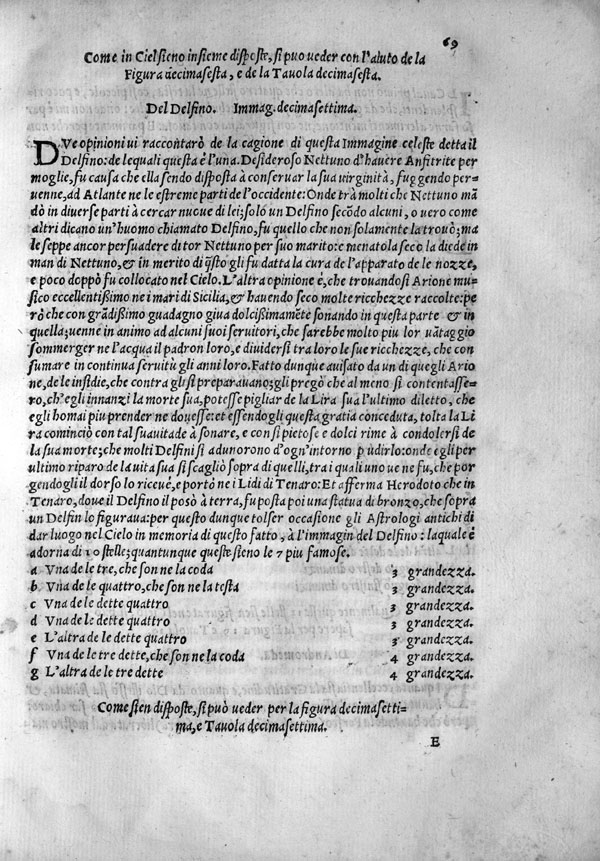 69
Come in Ciel sieno insieme disposte, si puo ueder con l'aiuto de la
Figura decimasesta, e de la Tauola decimasesta.
Del Delfino. Immag. decimasettima.
DVe opinioni ui raccontarò de la cagione di questa Immagine celeste detta il
Delfino: de lequali questa é l'una. Desideroso Nettuno d'hauere Anfitrite per
moglie, fu causa che ella sendo disposta à conseruar la sua uirginità, fuggendo per-
uenne, ad Atlante ne le estreme parti de l'occidente: Onde trà molti che Nettuno mā
dò in diuerse parti à cercar nuoue di lei; solo un Delfino secōdo alcuni, o uero come
altri dicano un'huomo chiamato Delfino, fu quello che non solamente la trouò; ma
le seppe ancor persuadere di tor Nettuno per suo marito: e menatola seco la diede in
man di Nettuno, & in merito di q̃sto gli fu datta la cura de l'apparato de le nozze,
e poco doppò fu collocato nel Cielo. L'altra opinione è, che trouandosi Arione mu-
sico eccellentißimo ne i mari di Sicilia, & hauendo seco molte ricchezze raccolte: pe
rò che con grādißimo guadagno giua dolcißimamēte sonando in questa parte & in
quella; uenne in animo ad alcuni suoi seruitori, che sarebbe molto piu lor uātaggio
sommerger ne l'acqua il padron loro, e diuidersi tra loro le sue ricchezze, che con
sumare in continua seruitù gli anni loro. Fatto dunque auisato da un di quegli Ario
ne, de le insidie, che contra gli si preparauano; gli pregò che al meno si contentasse-
ro, ch'egli innanzi la morte sua, potesse pigliar de la Lira sua l'ultimo diletto, che
egli homai piu prender ne douesse: et essendogli questa gratia conceduta, tolta la Li
ra cominciò con tal suauitade à sonare, e con si pietose e dolci rime à condolersi de
la sua morte; che molti Delfini si adunorono d'ogn'intorno p udirlo: onde egli per
ultimo riparo de la uita sua si scagliò sopra di quelli, tra i quali uno ue ne fu, che por
gendogli il dorso lo riceuè, e portò ne i Lidi di Tenaro: Et afferma Herodoto che in
Tenaro, doue il Delfino il posò à terra, fu posta poi una statua di bronzo, che sopra
un Delfin lo figuraua: per questo dunque tolser occasione gli Astrologi antichi di
dar luogo nel Cielo in memoria di questo fatto, à l'immagin del Delfino: laquale è
adorna di 10 stelle; quantunque queste sieno le 7 piu famose.
a Vna de le tre, che son ne la coda 3 grandezza.
b Vna de le quattro, che son ne la testa 3 grandezza.
c Vna de le dette quattro 3 grandezza.
d Vna de le dette quattro 3 grandezza.
e L'altra de le dette quattro 3 grandezza.
f Vna de le tre dette, che son ne la coda 4 grandezza.
g L'altra de le tre dette 4 grandezza.
Come sien disposte, si può ueder per la figura decimasetti-
ma, e Tauola decimasettima.
E